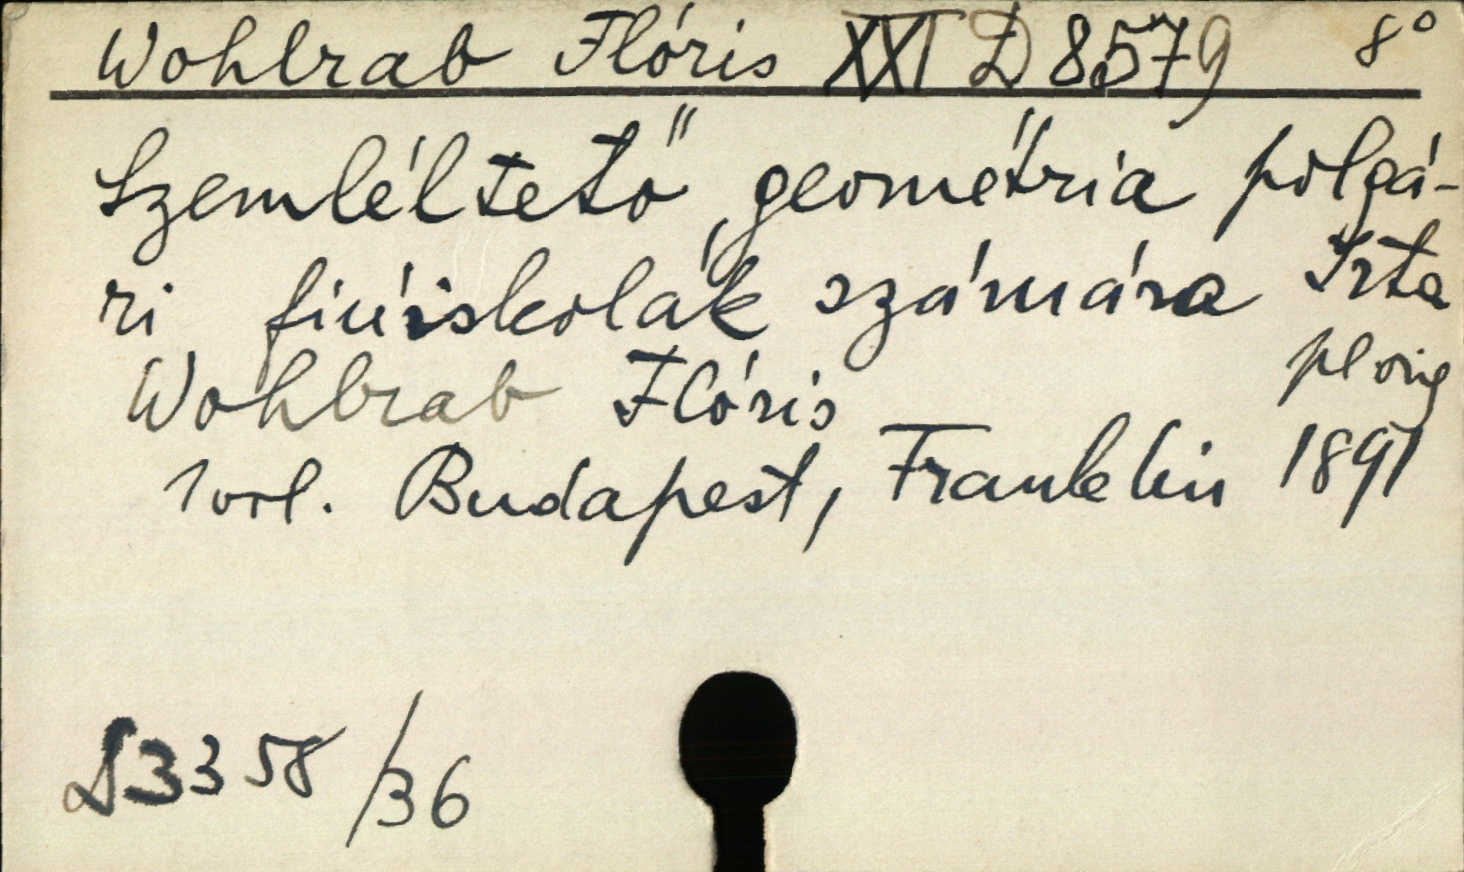 Wohlrab Flóris XXI D 8579 8°
Szemléltető geometria polgá-
ri fiúiskolák számára Irta
Wohlrab Flóris pl orig
1 vol. Budapest, Franklin 1891
D3358/36